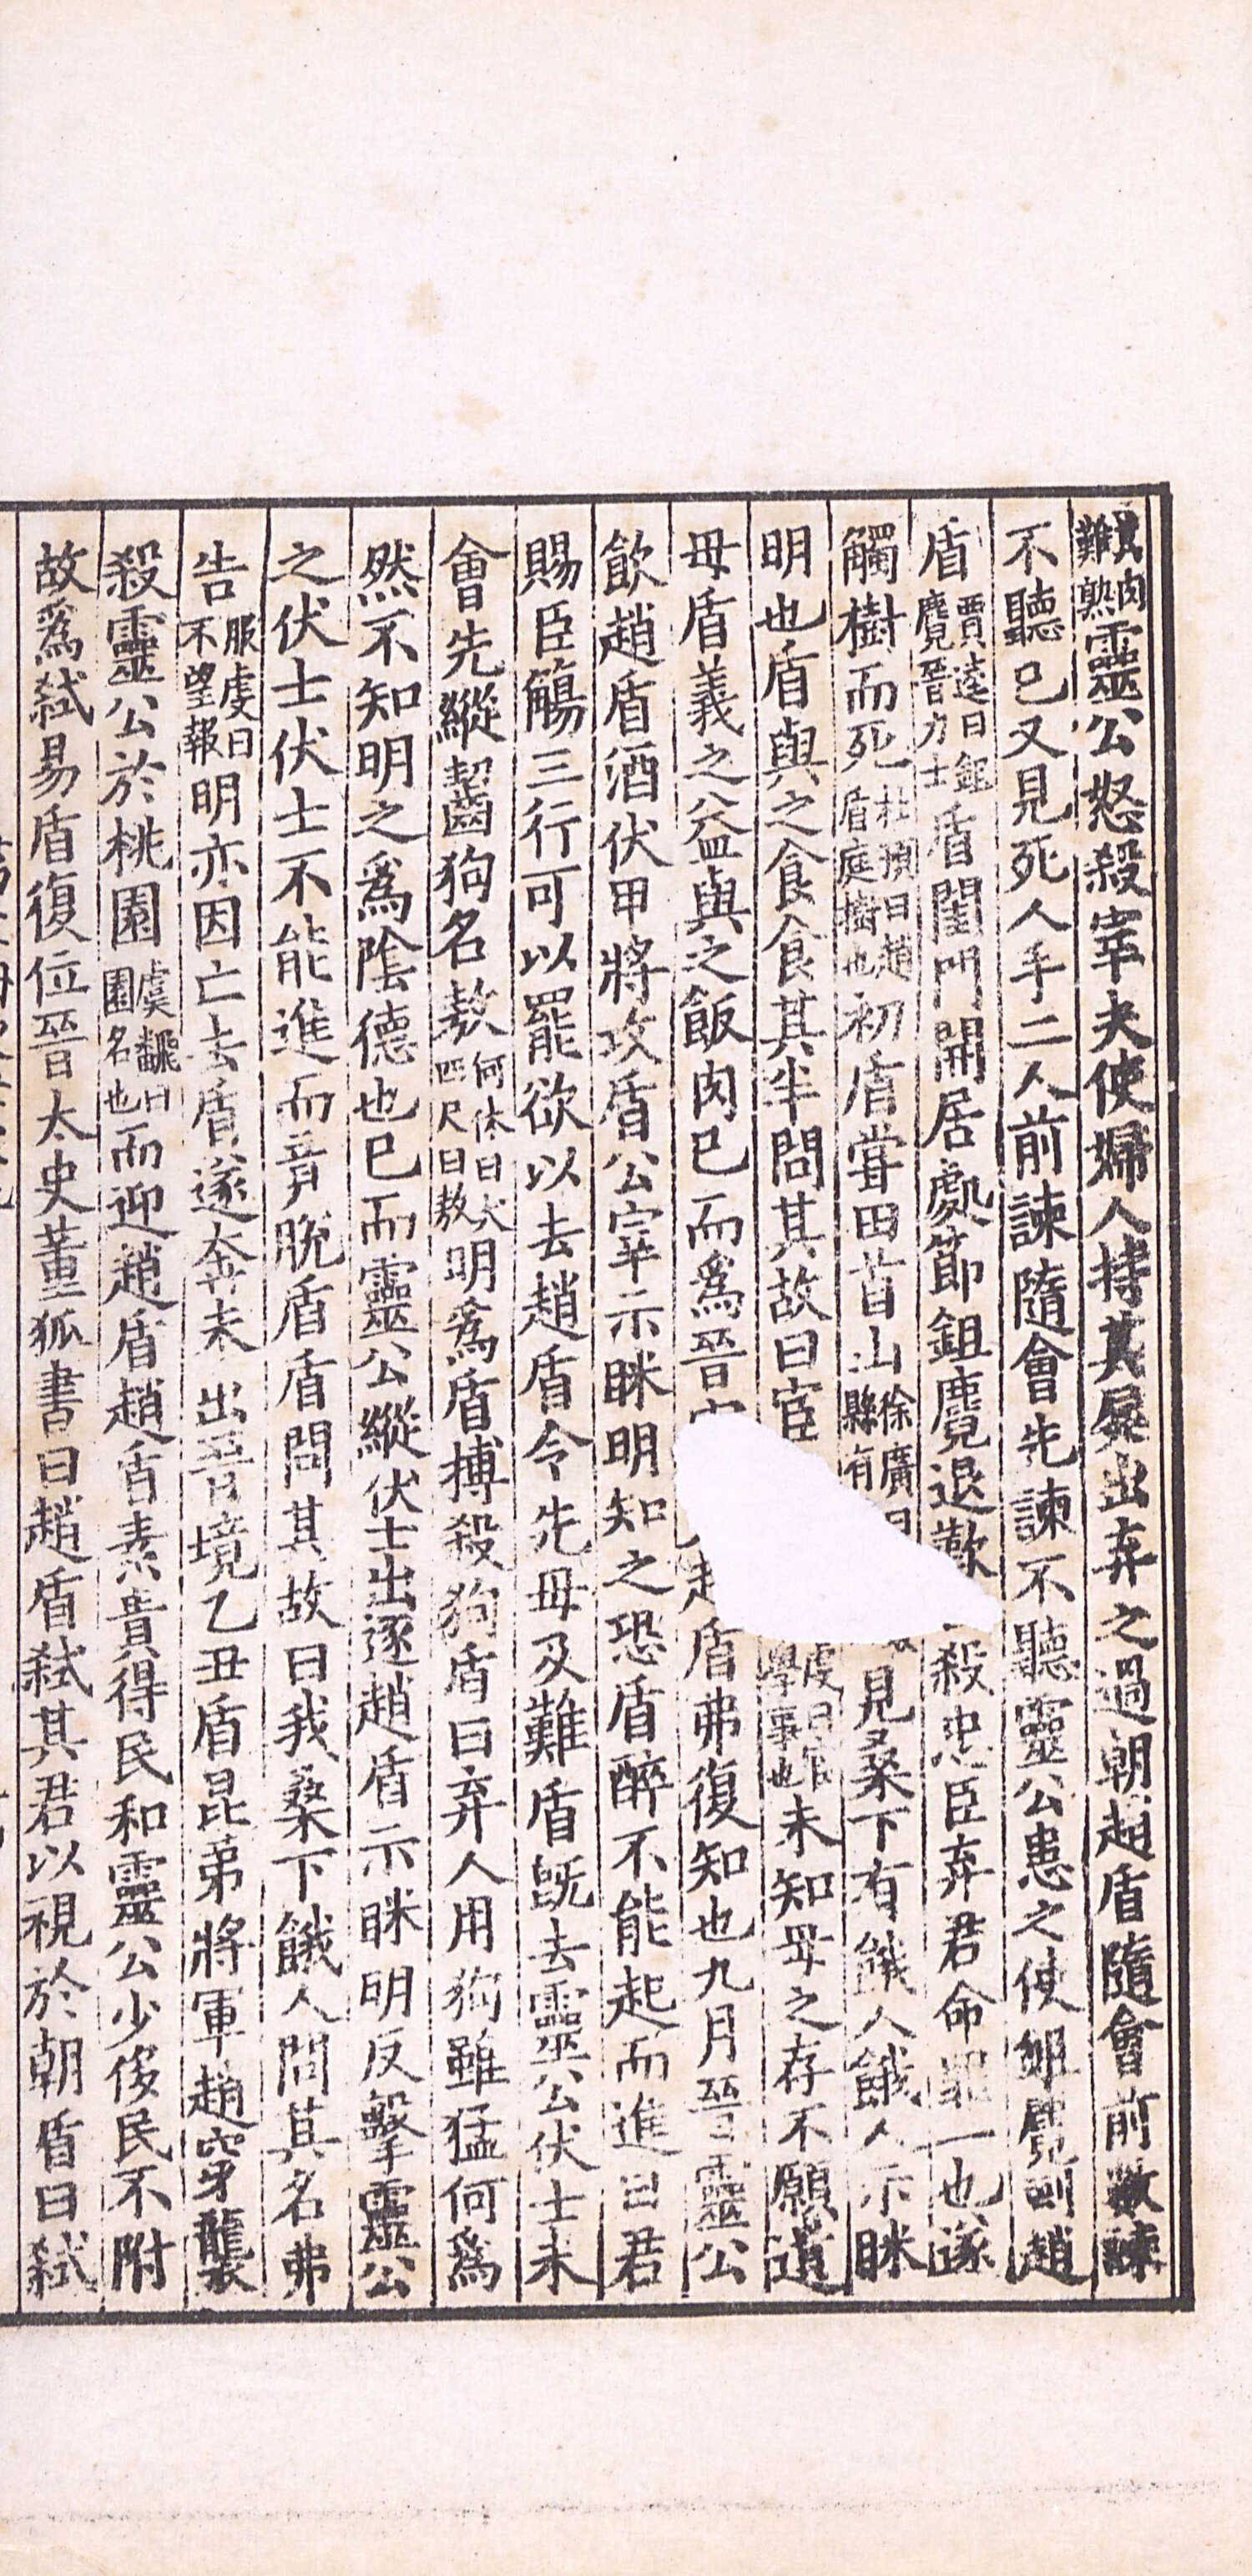 肉難熟靈公怒殺宰夫使婦人持其屍出弃之過朝趙盾隨會前數諫
不聽已又見死人手二人前諫隨會先諫不聽靈公患之使鉏麑刺趙
盾賈逵曰鉏麑晉力士盾閨門開居處節鉏麑退歎殺忠臣弃君命罪一也遂
觸樹而死杜預曰趙盾庭樹也初盾甞田首山徐廣縣有見桑下有餓人餓人示眯
明也盾與之食食其半問其故曰宦虔曰宦學事也未知母之存不願遺
母盾義之益與之飯肉已而爲晉盾弗復知也九月晉靈公
飮趙盾酒伏甲將攻盾公宰示眯明知之恐盾醉不能起而進曰君
賜臣觴三行可以罷欲以去趙盾令先毋及難盾旣去靈公伏士未
會先縱齧狗名敖何休曰犬四尺曰敖明爲盾搏殺狗盾曰弃人用狗雖猛何爲
然不知明之爲隂德也已而靈公縱伏士出逐趙盾示眯明反擊靈公
之伏士伏士不能進而竟脫盾盾問其故曰我桑下餓人問其名弗
告服虔曰不望報明亦因亡去盾遂奔未出晉境乙丑盾昆弟將軍趙穿襲
殺靈公於桃園虞翻曰園名也而迎趙盾趙盾素貴得民和靈公少侈民不附
故爲弑易盾復位晉太史董狐書曰趙盾弑其君以視於朝盾曰弑